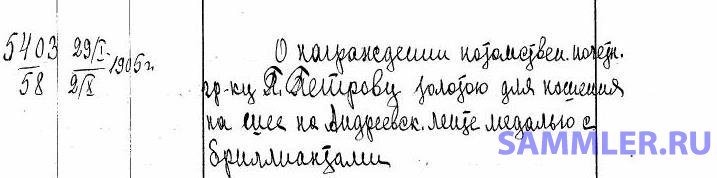 5403/58 29/I 2/X 1905 г.
О награждении потомствен. почетн.
гр-ку П. Петрову золотою для ношения
на шее на Андреевск. ленте медалью с
бриллиантами
SAMMLER.RU